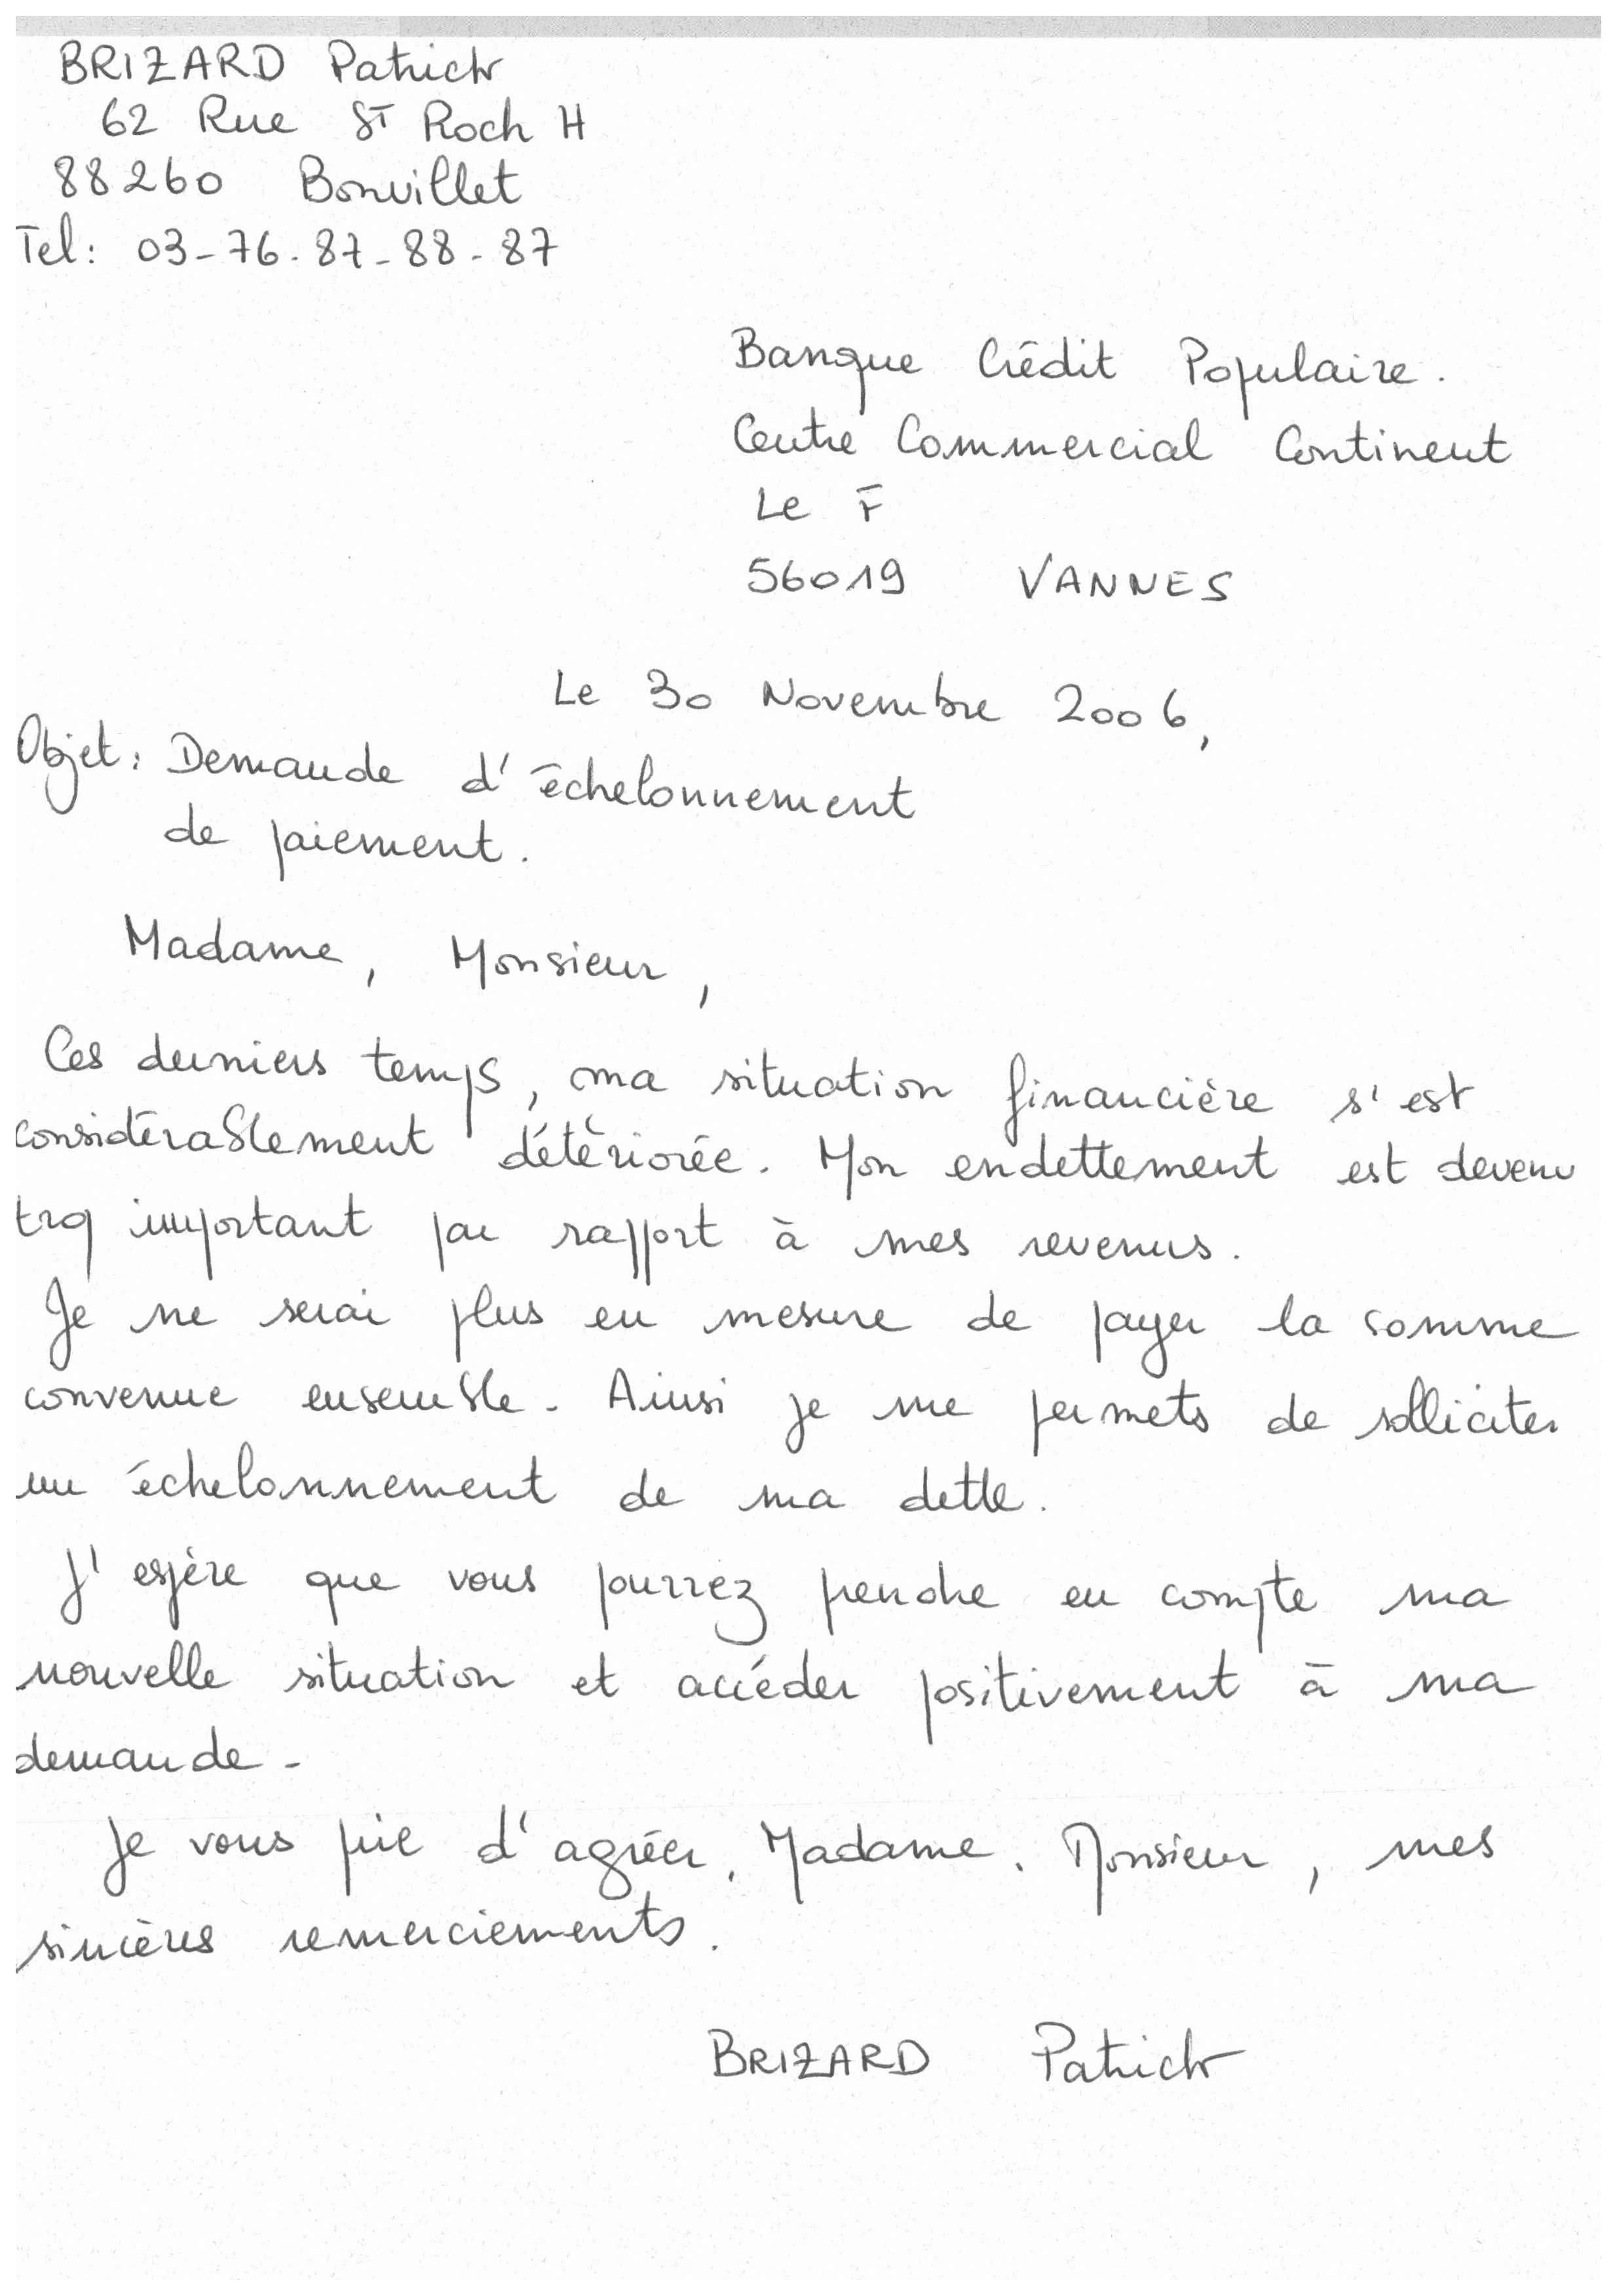 BRIZARD Patrick
62 Rue St Roch H
88260 Bonvillet
Tel: 03-76-87-88-87
Banque Crédit Populaire.
Centre Commercial Continent
Le F
56019 VANNES
Le 30 Novembre 2006,
Objet: Demande d'échelonnement
de paiement.
Madame, Monsieur,
Ces derniers temps, ma situation financière s'est
considérablement détériorée. Mon endettement est devenu
trop important par rapport à mes revenus.
Je ne serai plus en mesure de payer la somme
convenue ensemble. Ainsi je me permets de solliciter
un échelonnement de ma dette.
J'espère que vous pourrez prendre en compte ma
nouvelle situation et accéder positivement à ma
demande.
Je vous prie d'agréer, Madame, Monsieur, mes
sincères remerciements.
BRIZARD Patrick